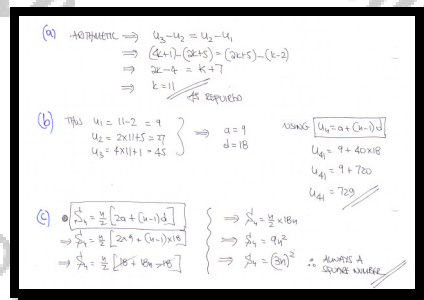 (a) ARITHMETIC ⇒ u₃ - u₂ = u₂ - u₁
⇒ (4k+1) - (2k+5) = (2k+5) - (k-2)
⇒ 2k - 4 = k + 7
⇒ k = 11
AS REQUIRED
(b) THUS u₁ = 11 - 2 = 9
u₂ = 2×11+5 = 27
u₃ = 4×11+1 = 45
⇒ a = 9
d = 18
USING uₙ = a + (n-1)d
u₄₁ = 9 + 40×18
u₄₁ = 9 + 720
u₄₁ = 729
(c) • Sₙ = n/2 [2a + (n-1)d]
⇒ Sₙ = n/2 [2×9 + (n-1)×18]
⇒ Sₙ = n/2 [18 + 18n - 18]
⇒ Sₙ = n/2 × 18n
⇒ Sₙ = 9n²
⇒ Sₙ = (3n)² ∴ ALWAYS A
SQUARE NUMBER